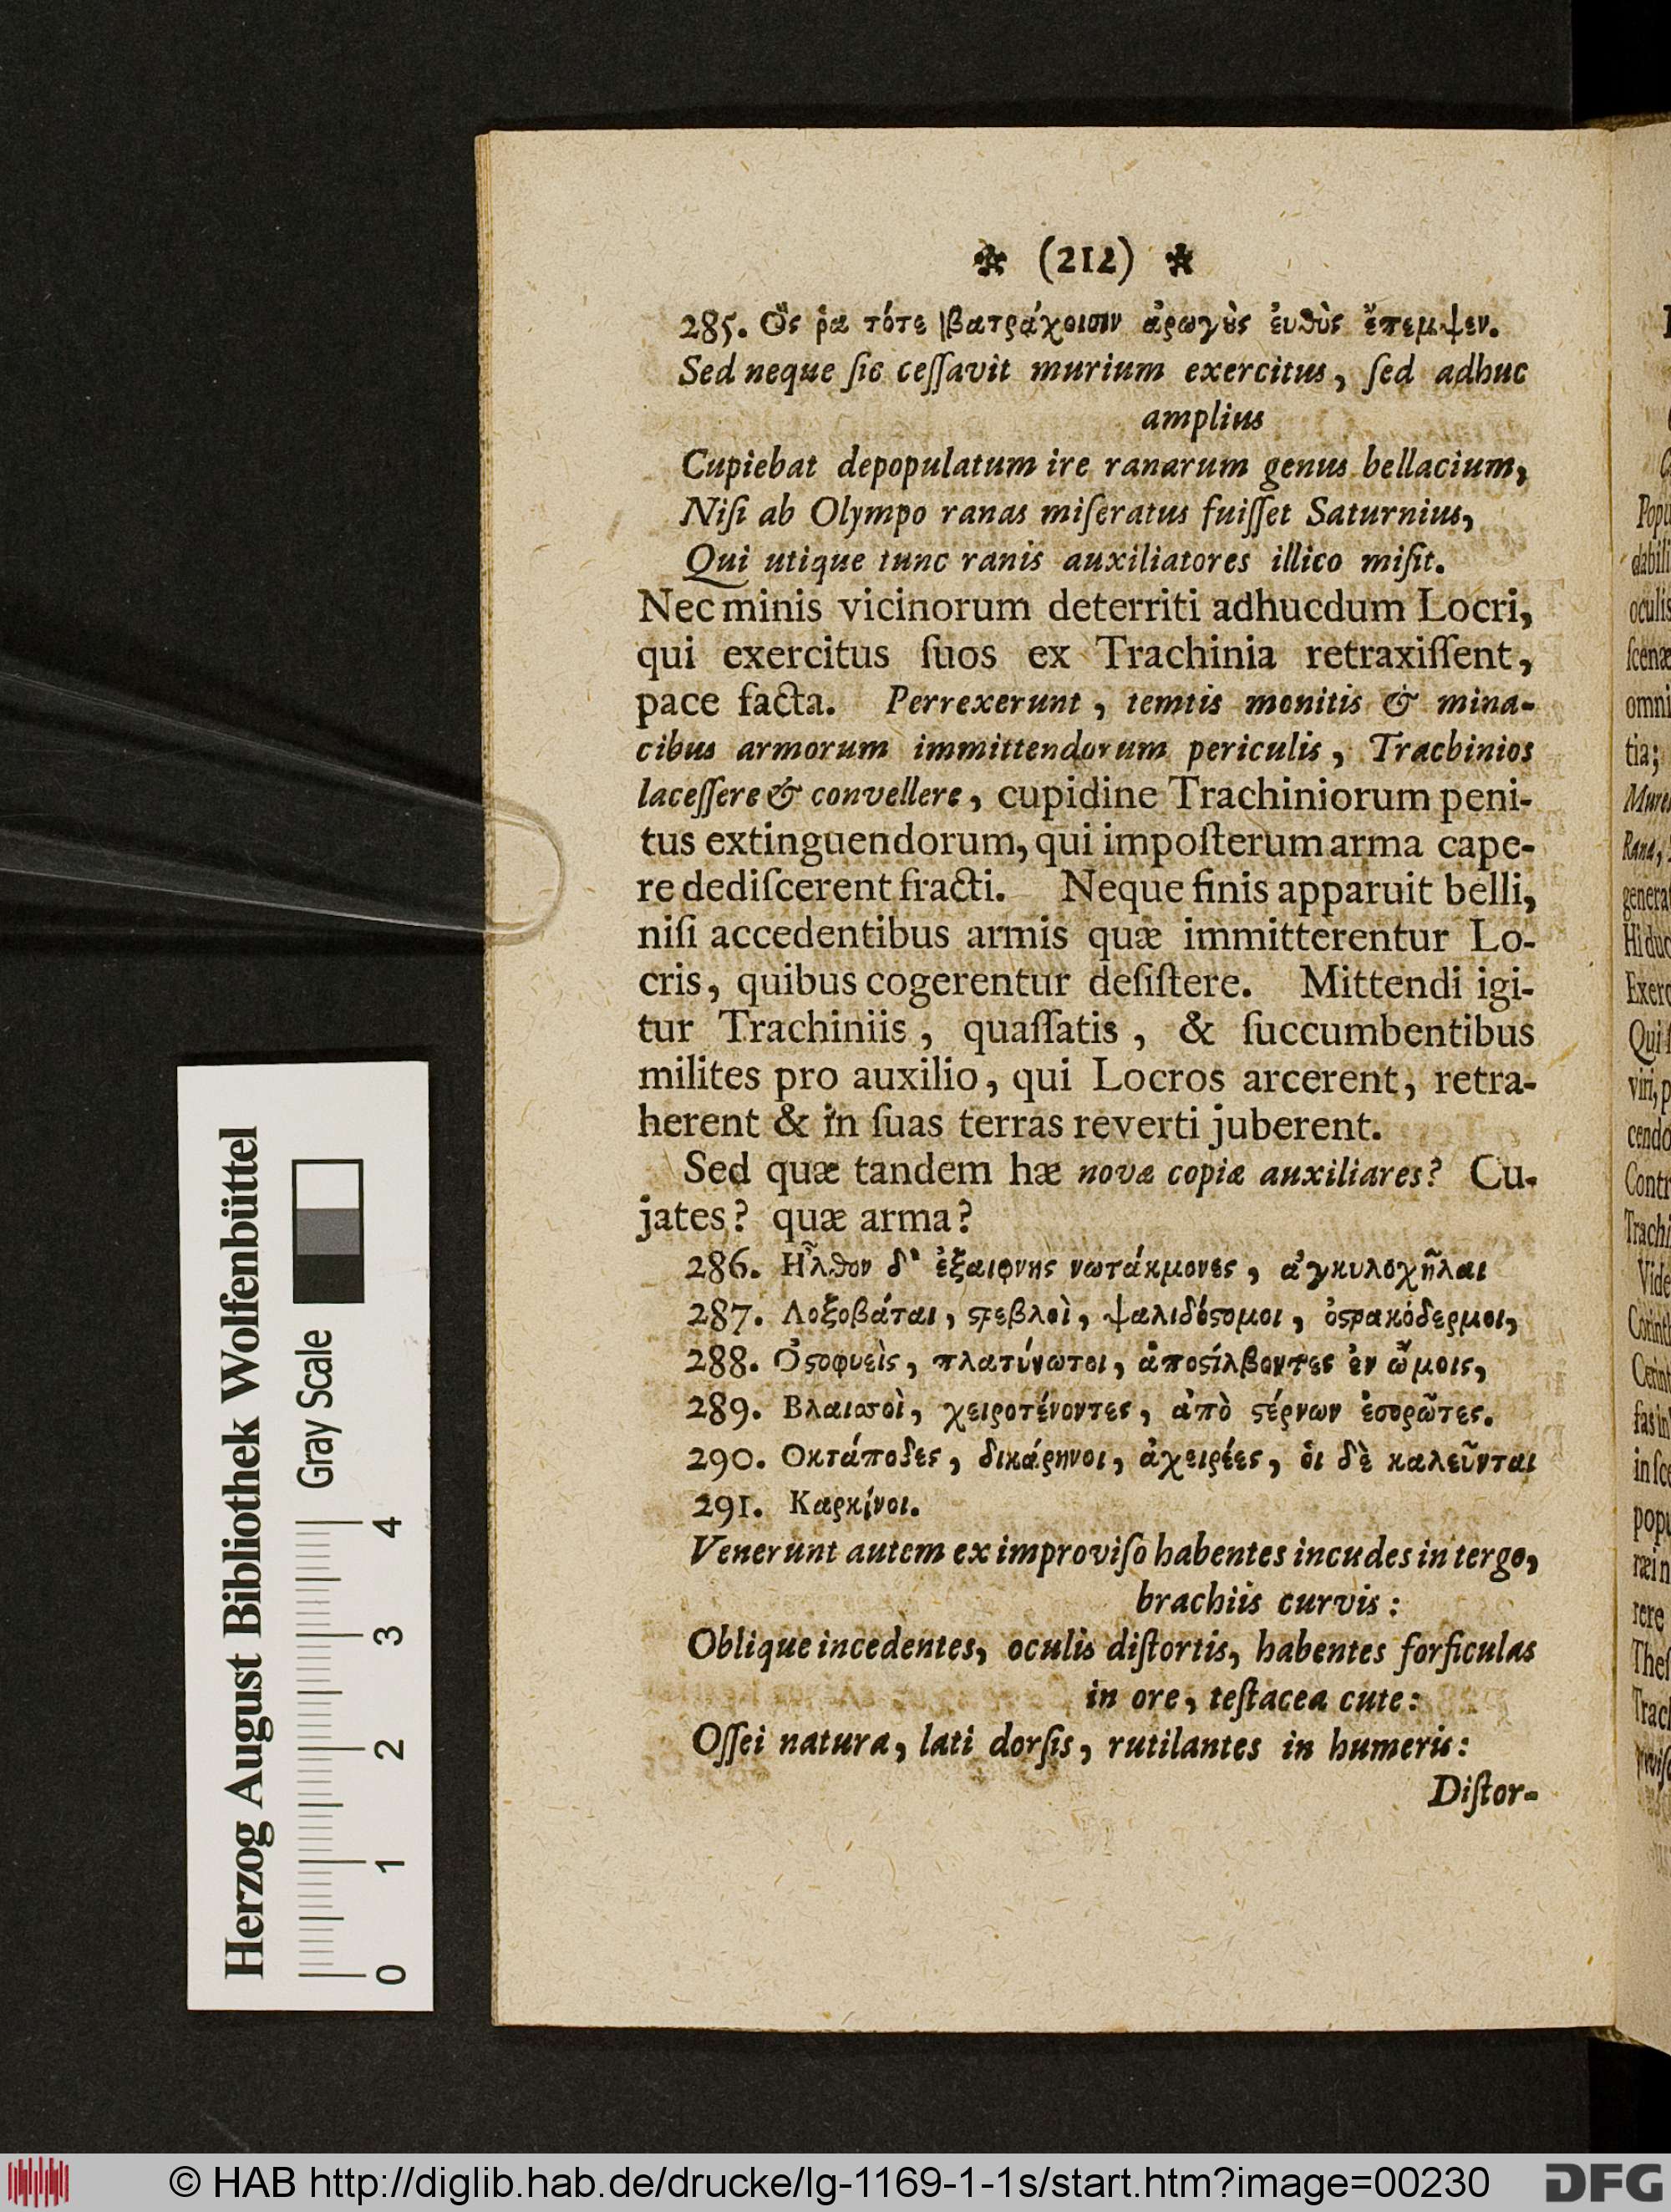 (212)
285. Ὅς ῥα τότε βατράχοισιν ἀρωγοὺς ἐυθὺς ἔπεμψεν.
Sed neque ſic ceſſavit murium exercitus, ſed adhuc
amplius
Cupiebat depopulatum ire ranarum genus bellacium,
Niſi ab Olympo ranas miſeratus fuiſſet Saturnius,
Qui utique tunc ranis auxiliatores illico miſit.
Nec minis vicinorum deterriti adhucdum Locri,
qui exercitus ſuos ex Trachinia retraxiſſent,
pace facta. Perrexerunt, temtis monitis & mina-
cibus armorum immittendorum periculis, Trachinios
laceſſere & convellere, cupidine Trachiniorum peni-
tus extinguendorum, qui impoſterum arma cape-
re dediſcerent fracti. Neque finis apparuit belli,
niſi accedentibus armis quæ immitterentur Lo-
cris, quibus cogerentur deſiſtere. Mittendi igi-
tur Trachiniis, quaſſatis, & ſuccumbentibus
milites pro auxilio, qui Locros arcerent, retra-
herent & in ſuas terras reverti juberent.
Sed quæ tandem hæ novæ copiæ auxiliares? Cu-
jates? quæ arma?
286. Ἦλθον δ' ἐξαιφνης νωτάκμονες, ἀγκυλοχῆλαι
287. Λοξοβάται, ϛρεβλοὶ, ψαλιδόϛομοι, ὀϛρακόδερμοι,
288. Ὀϛοφυεὶς, πλατύνωτοι, ἀποϛίλβοντες ἐν ὤμοις,
289. Βλαισοὶ, χειροτένοντες, ἀπὸ ϛέρνων ἐσορῶτες.
290. Οκτάποδες, δικάρηνοι, ἀχειρέες, ὁι δὲ καλεῦνται
291. Καρκίνοι.
Venerunt autem ex improviſo habentes incudes in tergo,
brachiis curvis:
Oblique incedentes, oculis diſtortis, habentes forficulas
in ore, teſtacea cute:
Oſſei natura, lati dorſis, rutilantes in humeris:
Diſtor-
Herzog August Bibliothek Wolfenbüttel
Gray Scale
0 1 2 3 4
© HAB http://diglib.hab.de/drucke/lg-1169-1-1s/start.htm?image=00230
DFG